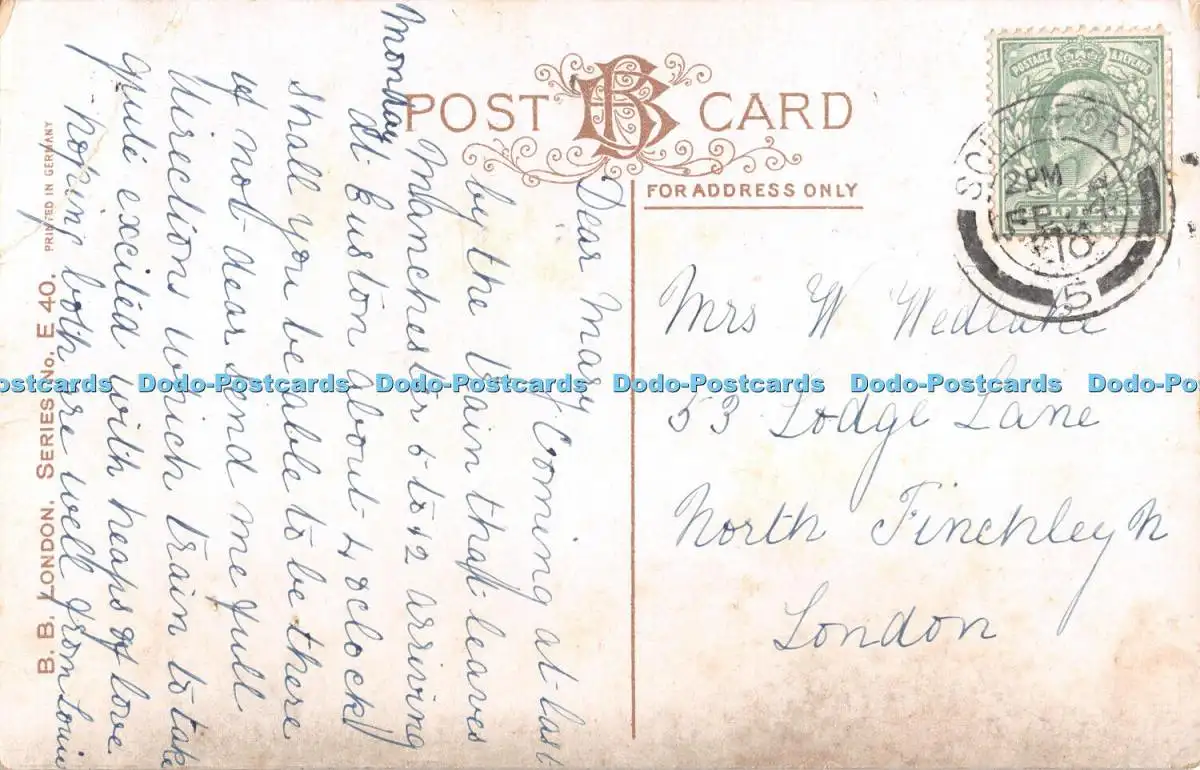 POST CARD
BB
FOR ADDRESS ONLY
POSTAGE
12 PM
10
5
Mrs W Wedlake
53 Lodge Lane
North Finchley N
London
Monday
Dear Mary
Coming at last
by the train that leaves
Manchester 5 to 12 arriving
at Euston about 4 oclock
shall you be able to be there
if not dear send me full
directions which train to take
quite excited with heaps of love
hoping both are well from Louie
B. B. LONDON. SERIES No. E 40. PRINTED IN GERMANY
Dodo-Postcards Dodo-Postcards Dodo-Postcards Dodo-Postcards Dodo-Postcards